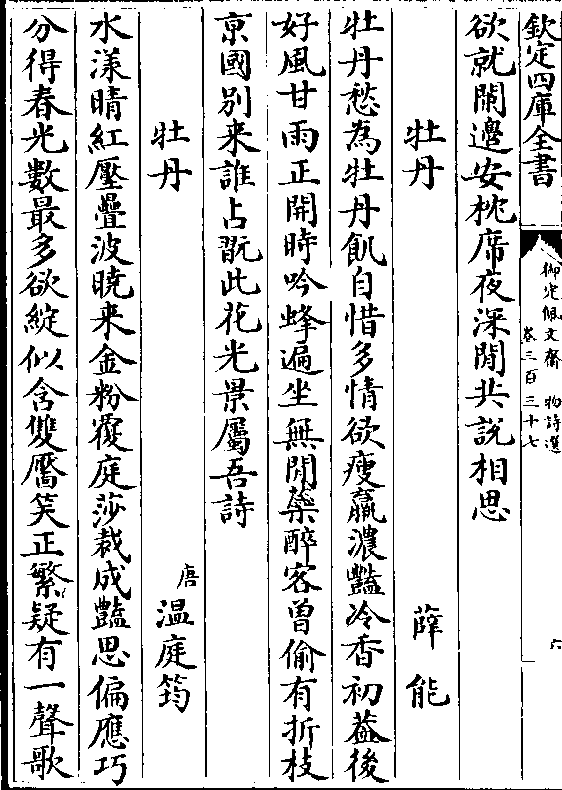 欽定四庫全書
御定佩文齋 物詩選
卷三百三十七
六
欲就闌邊安枕席夜深閒共說相思
牡丹 薛能
牡丹愁為牡丹飢自惜多情欲瘦羸濃豔冷香初葢後
好風甘雨正開時吟蜂遍坐無閒蘂醉客曾偷有折枝
京國别来誰占翫此花光景屬吾詩
牡丹 唐温庭筠
水漾晴紅壓疊波曉来金粉覆庭莎裁成豔思偏應巧
分得春光數最多欲綻似含雙靨笑正繁疑有一聲歌